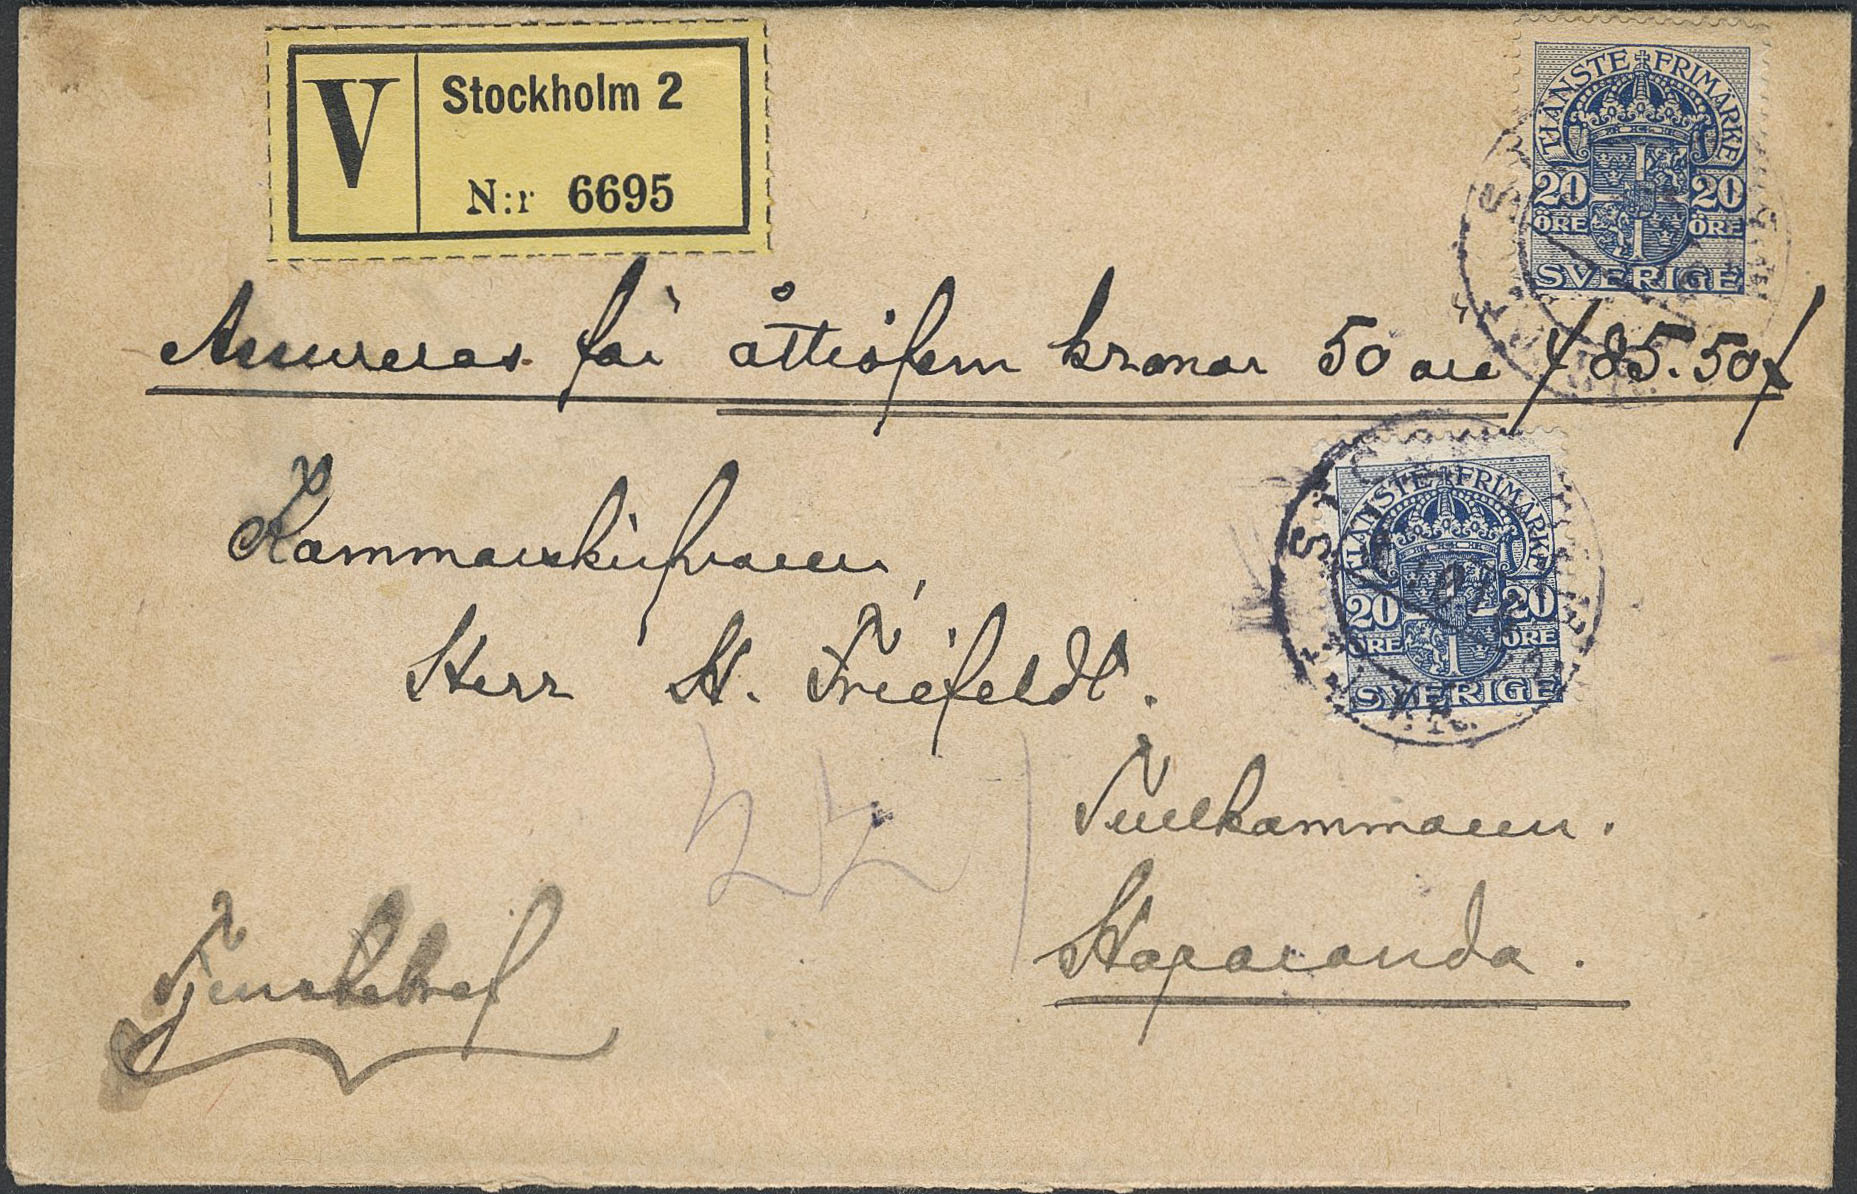 V
Stockholm 2
N:r 6695
TJÄNSTE FRIMÄRKE
20 20
ÖRE ÖRE
SVERIGE
Assureras för åttiofem kronor 50 öre /85.50/
TJÄNSTE FRIMÄRKE
20 20
ÖRE ÖRE
SVERIGE
Kammarskrifvaren,
Herr H. Friefeldt.
Tullkammaren.
Haparanda.
Tjenstebref